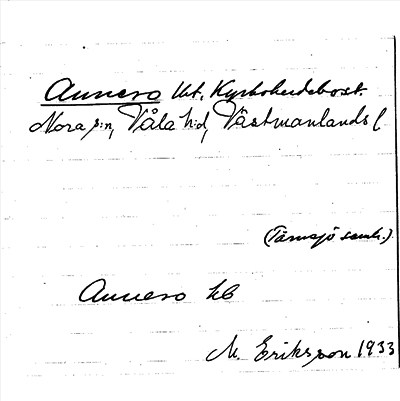 Annero Urt. Kyrkoherdebost.
Nora s:n, Våla h:d, Västmanlands l
(Tärnsjö samh.)
Annero kb
M. Eriksson 1933